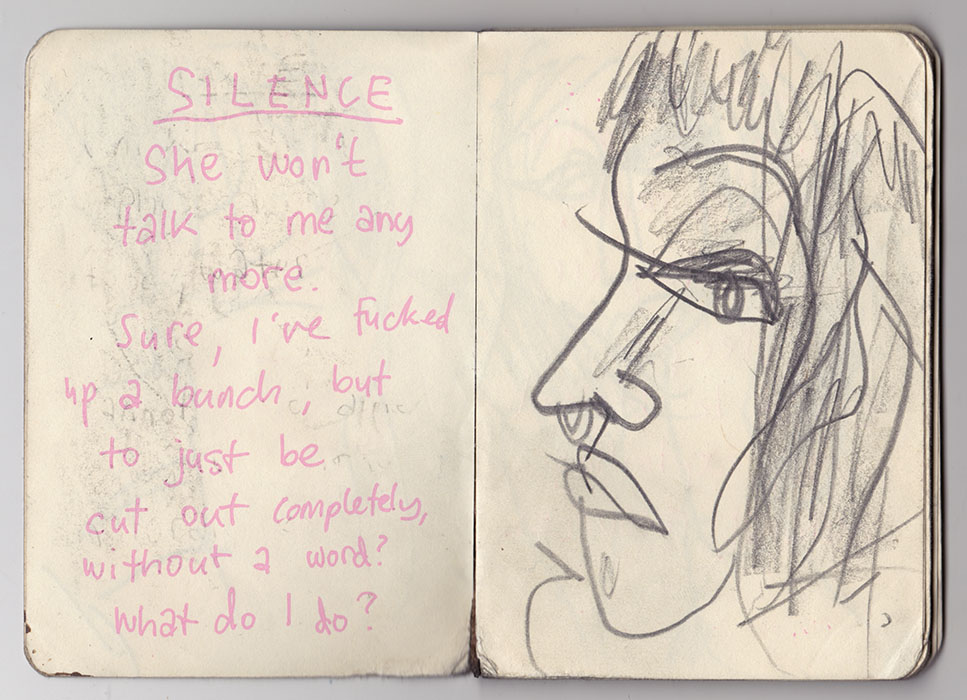 SILENCE
She won't
talk to me any
more.
Sure, I've fucked
up a bunch, but
to just be
cut out completely,
without a word?
What do I do?